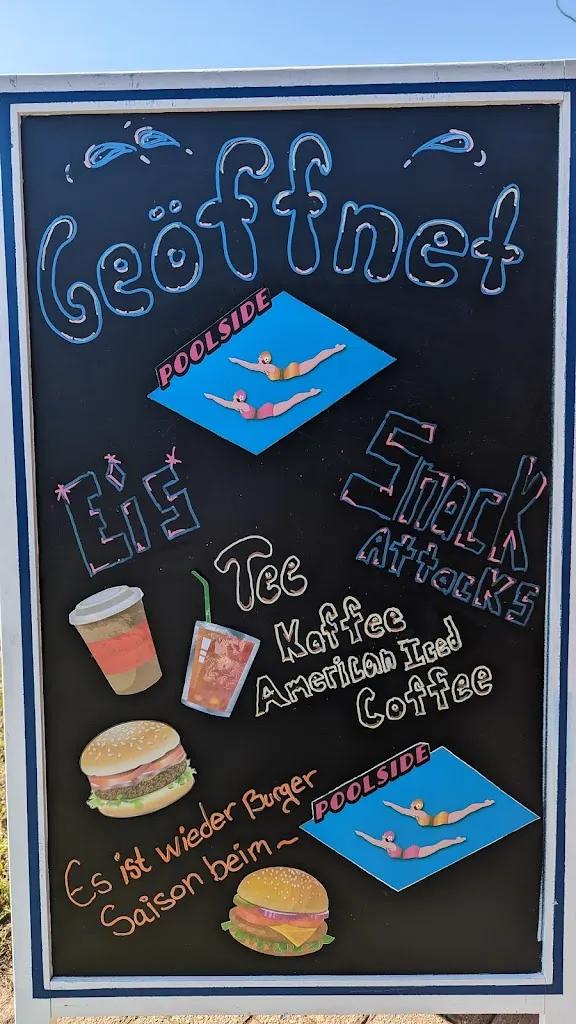 Geöffnet
POOLSIDE
Eis
Snack
Attacks
Tee
Kaffee
American Iced
Coffee
Es ist wieder Burger
Saison beim ~
POOLSIDE